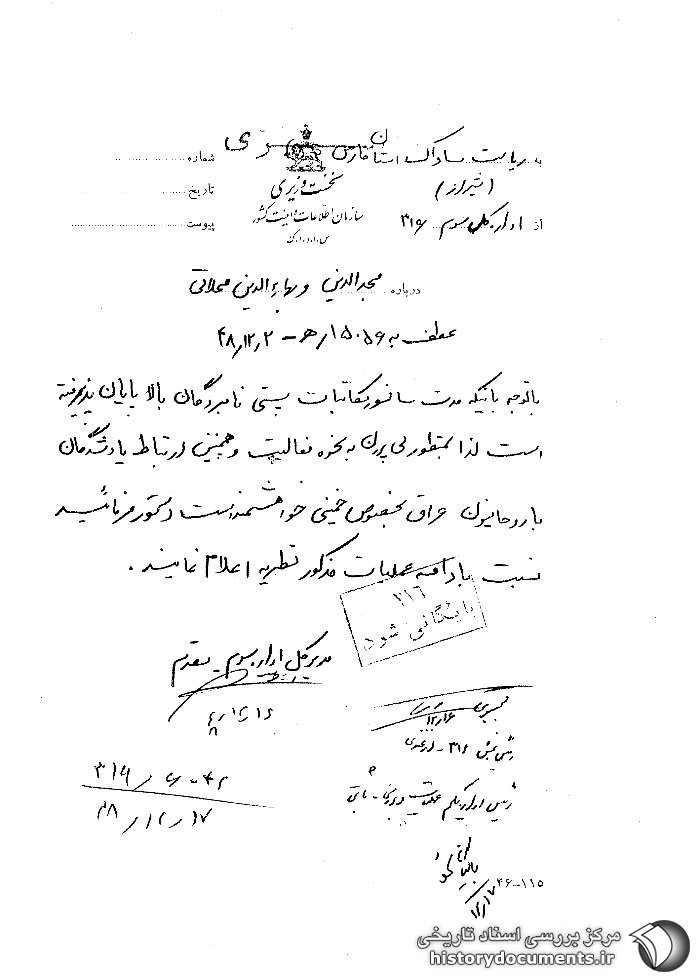 به ریاست ساواک استان فارس سری شماره
(شیراز) نخست وزیری تاریخ
از اداره کل سوم ۳۱۶ سازمان اطلاعات و امنیت کشور پیوست
س.ا.ا.ک
درباره مجدالدین و بهاءالدین محلاتی
عطف به ۱۵۰۵۶/ه‍ - ۴۸٫۱۲٫۲
باتوجه باینکه مدت سانسور مکاتبات پستی نامبردگان بالا پایان پذیرفته
است لذا بمنظور پی بردن به نحوه فعالیت و همچنین ارتباط یادشدگان
با روحانیون عراق بخصوص خمینی خواهشمند است دستور فرمائید
نسبت بادامه عملیات مذکور نظریه اعلام نمایند.
۳۱۶
بایگانی شود
مدیرکل اداره سوم - مقدم
۱۲/۱۶
رئیس بخش ۳۱۶ -
رئیس اداره یکم عملیات و بررسی - ثابتی
۳۱۶/
۴۸/۱۲/۱۷
بایگانی شود
۱۲/۱۷
۴۶-۱۱۵
مرکز بررسی اسناد تاریخی
historydocuments.ir